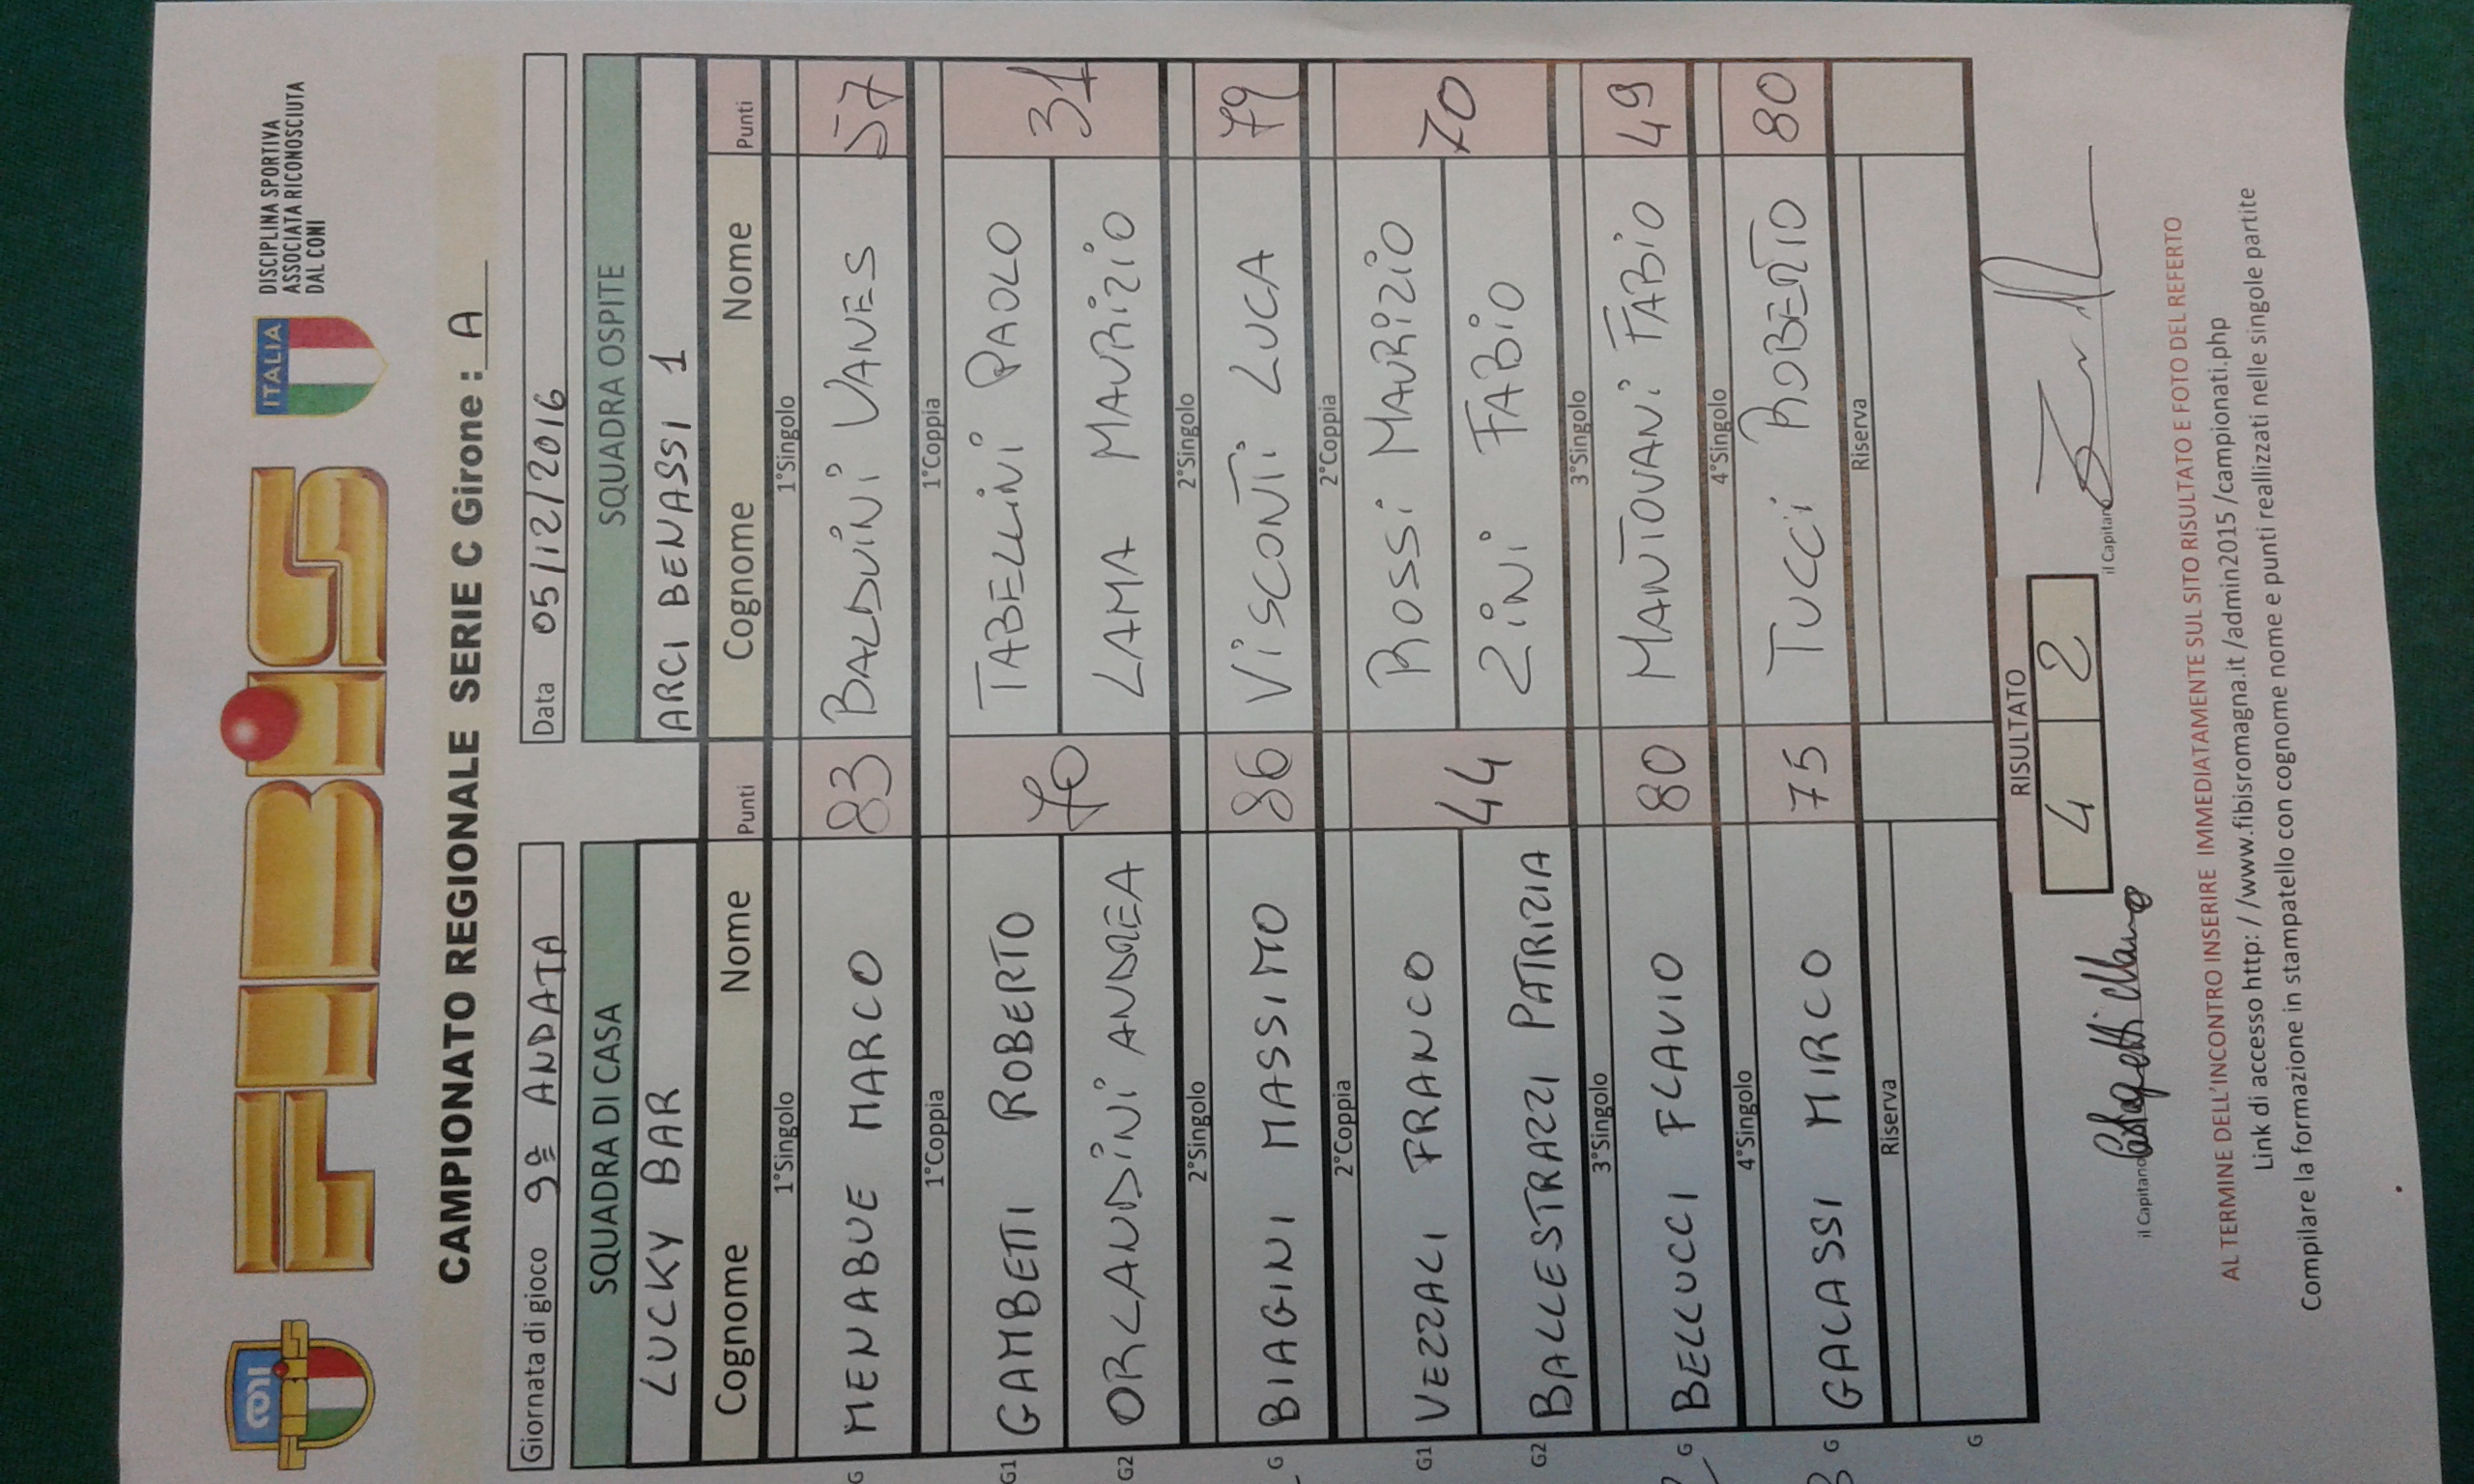 CONI
FIBIS
ITALIA
DISCIPLINA SPORTIVA
ASSOCIATA RICONOSCIUTA
DAL CONI
CAMPIONATO REGIONALE SERIE C Girone : A
Giornata di gioco 9ª ANDATA Data 05/12/2016
SQUADRA DI CASA SQUADRA OSPITE
LUCKY BAR ARCI BENASSI 1
Cognome Nome Punti Cognome Nome Punti
1°Singolo 1°Singolo
G MENABUE MARCO 83 BALDUINI VANES 57
1°Coppia 1°Coppia
G1 GAMBETTI ROBERTO 70 TABELLINI PAOLO 31
G2 ORLANDINI ANDREA LAMA MAURIZIO
2°Singolo 2°Singolo
G BIAGINI MASSIMO 86 VISCONTI LUCA 79
2°Coppia 2°Coppia
G1 VEZZALI FRANCO 44 ROSSI MAURIZIO 70
G2 BALLESTRAZZI PATRIZIA ZINI FABIO
3°Singolo 3°Singolo
G BELLUCCI FLAVIO 80 MANTOVANI FABIO 49
4°Singolo 4°Singolo
G GALASSI MIRCO 75 TUCCI ROBERTO 80
Riserva Riserva
G
RISULTATO
4 2
il Capitano il Capitano
AL TERMINE DELL'INCONTRO INSERIRE IMMEDIATAMENTE SUL SITO RISULTATO E FOTO DEL REFERTO
Link di accesso http: / /www.fibisromagna.it /admin2015 /campionati.php
Compilare la formazione in stampatello con cognome nome e punti reallizzati nelle singole partite